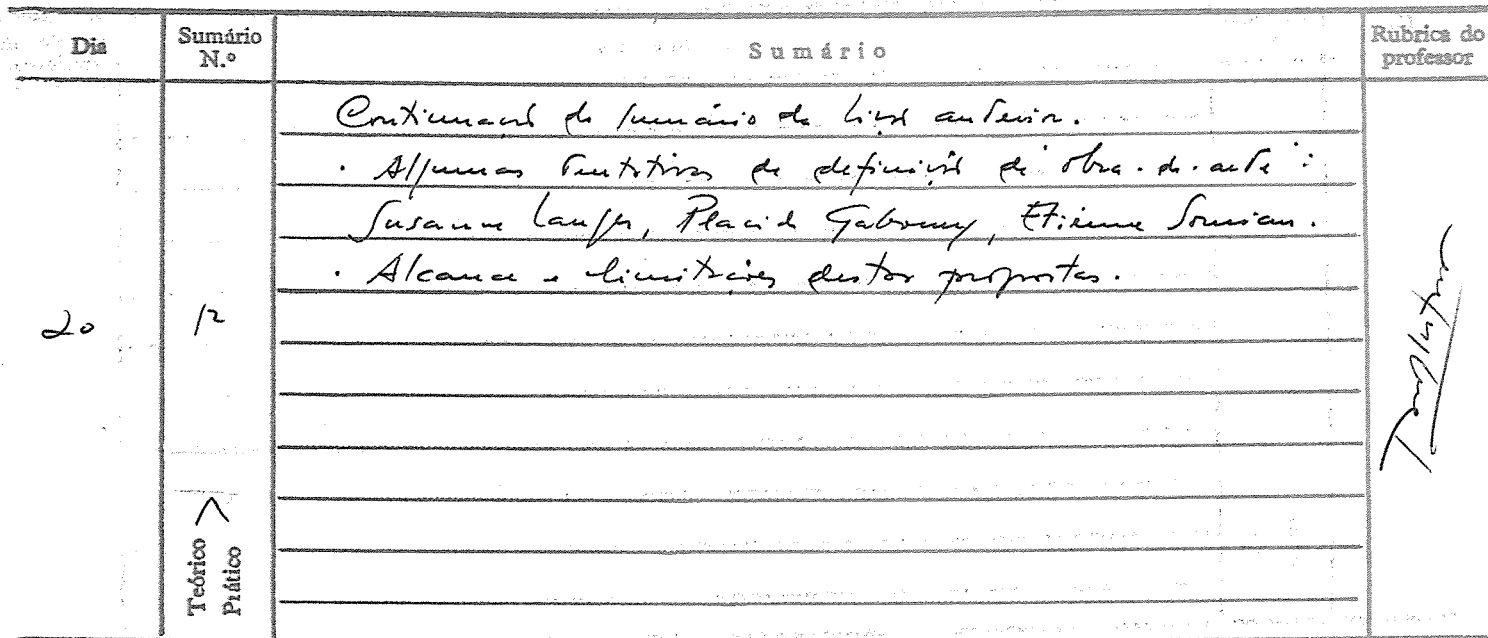 Dia
Sumário N.º
Sumário
Rubrica do professor
Continuação do sumário da lição anterior.
· Algumas tentativas de definição de obra-de-arte:
Susanne Langer, Placid Gaboury, Etienne Souriau.
· Alcance e limitações destas propostas.
20
12
Teórico >
Prático